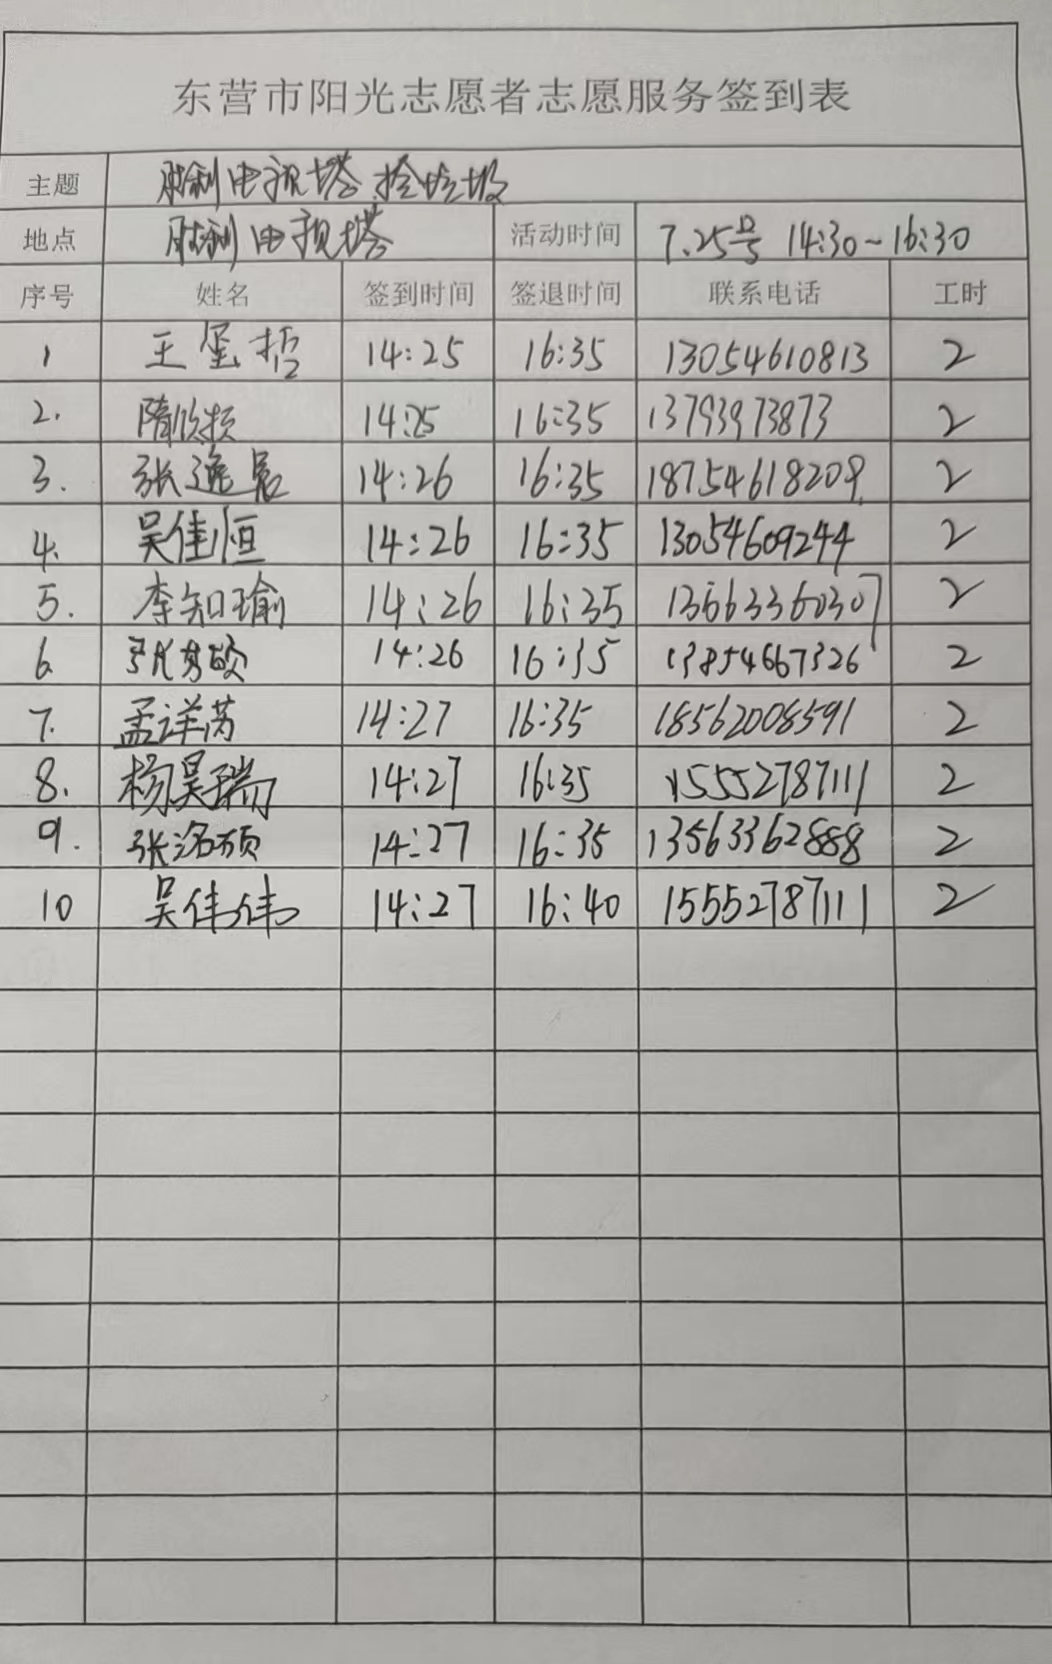 东营市阳光志愿者志愿服务签到表
主题 胜利电视塔捡垃圾
地点 胜利电视塔 活动时间 7.25号 14:30~16:30
序号 姓名 签到时间 签退时间 联系电话 工时
1 王玺哲 14:25 16:35 13054610813 2
2. 隋欣 14:25 16:35 13793973873 2
3. 张逸宸 14:26 16:35 18754618209 2
4. 吴佳恒 14:26 16:35 13054609244 2
5. 李知瑜 14:26 16:35 13663360307 2
6 硕 14:26 16:35 13854667326 2
7. 孟详芮 14:27 16:35 18562008591 2
8. 杨昊瑞 14:27 16:35 15552787111 2
9. 张洺硕 14:27 16:35 13563362888 2
10 吴伟伟 14:27 16:40 15552787111 2